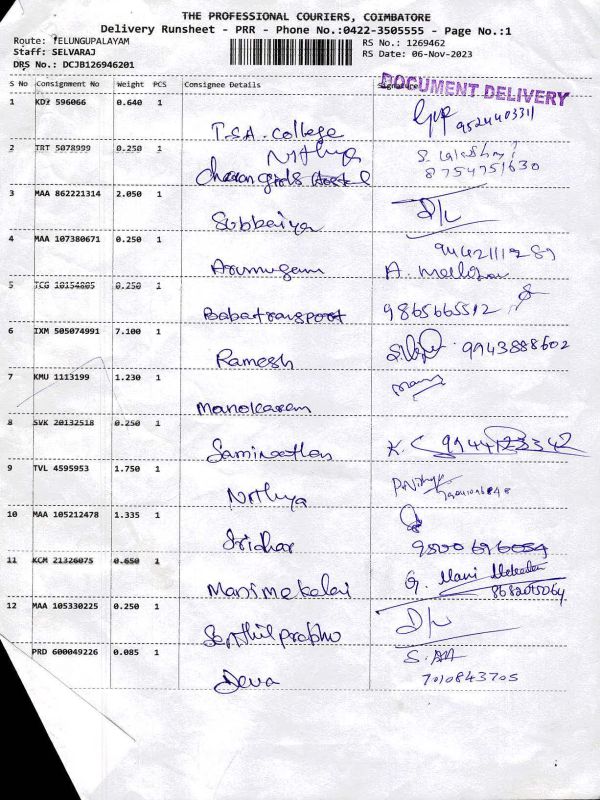 THE PROFESSIONAL COURIERS, COIMBATORE
Delivery Runsheet - PRR - Phone No.:0422-3505555 - Page No.:1
Route: TELUNGUPALAYAM
Staff: SELVARAJ
DRS No.: DCJB126946201
RS No.: 1269462
RS Date: 06-Nov-2023
S No Consignment No Weight PCS Consignee Details Signature
DOCUMENT DELIVERY
1 KDZ 596066 0.640 1 T.S.A. College
2 TRT 5078999 0.250 1 Nithya
8754751630
3 MAA 862221314 2.050 1 Subbaiya
4 MAA 107380671 0.250 1 Arumugam
5 TCG 10154805 0.250 1 Babatransport 9865665512
6 IXM 505074991 7.100 1 Ramesh 9943888602
7 KMU 1113199 1.230 1 Manokaram
8 SVK 20132518 0.250 1 Saminathan K.C 9944123342
9 TVL 4595953 1.750 1 Nithya
10 MAA 105212478 1.335 1 Sridhar
11 KCM 21326075 0.650 1 Manimekalai G. Mani
12 MAA 105330225 0.250 1 Senthilprabhu
PRD 600049226 0.085 1 Deva
7010843705